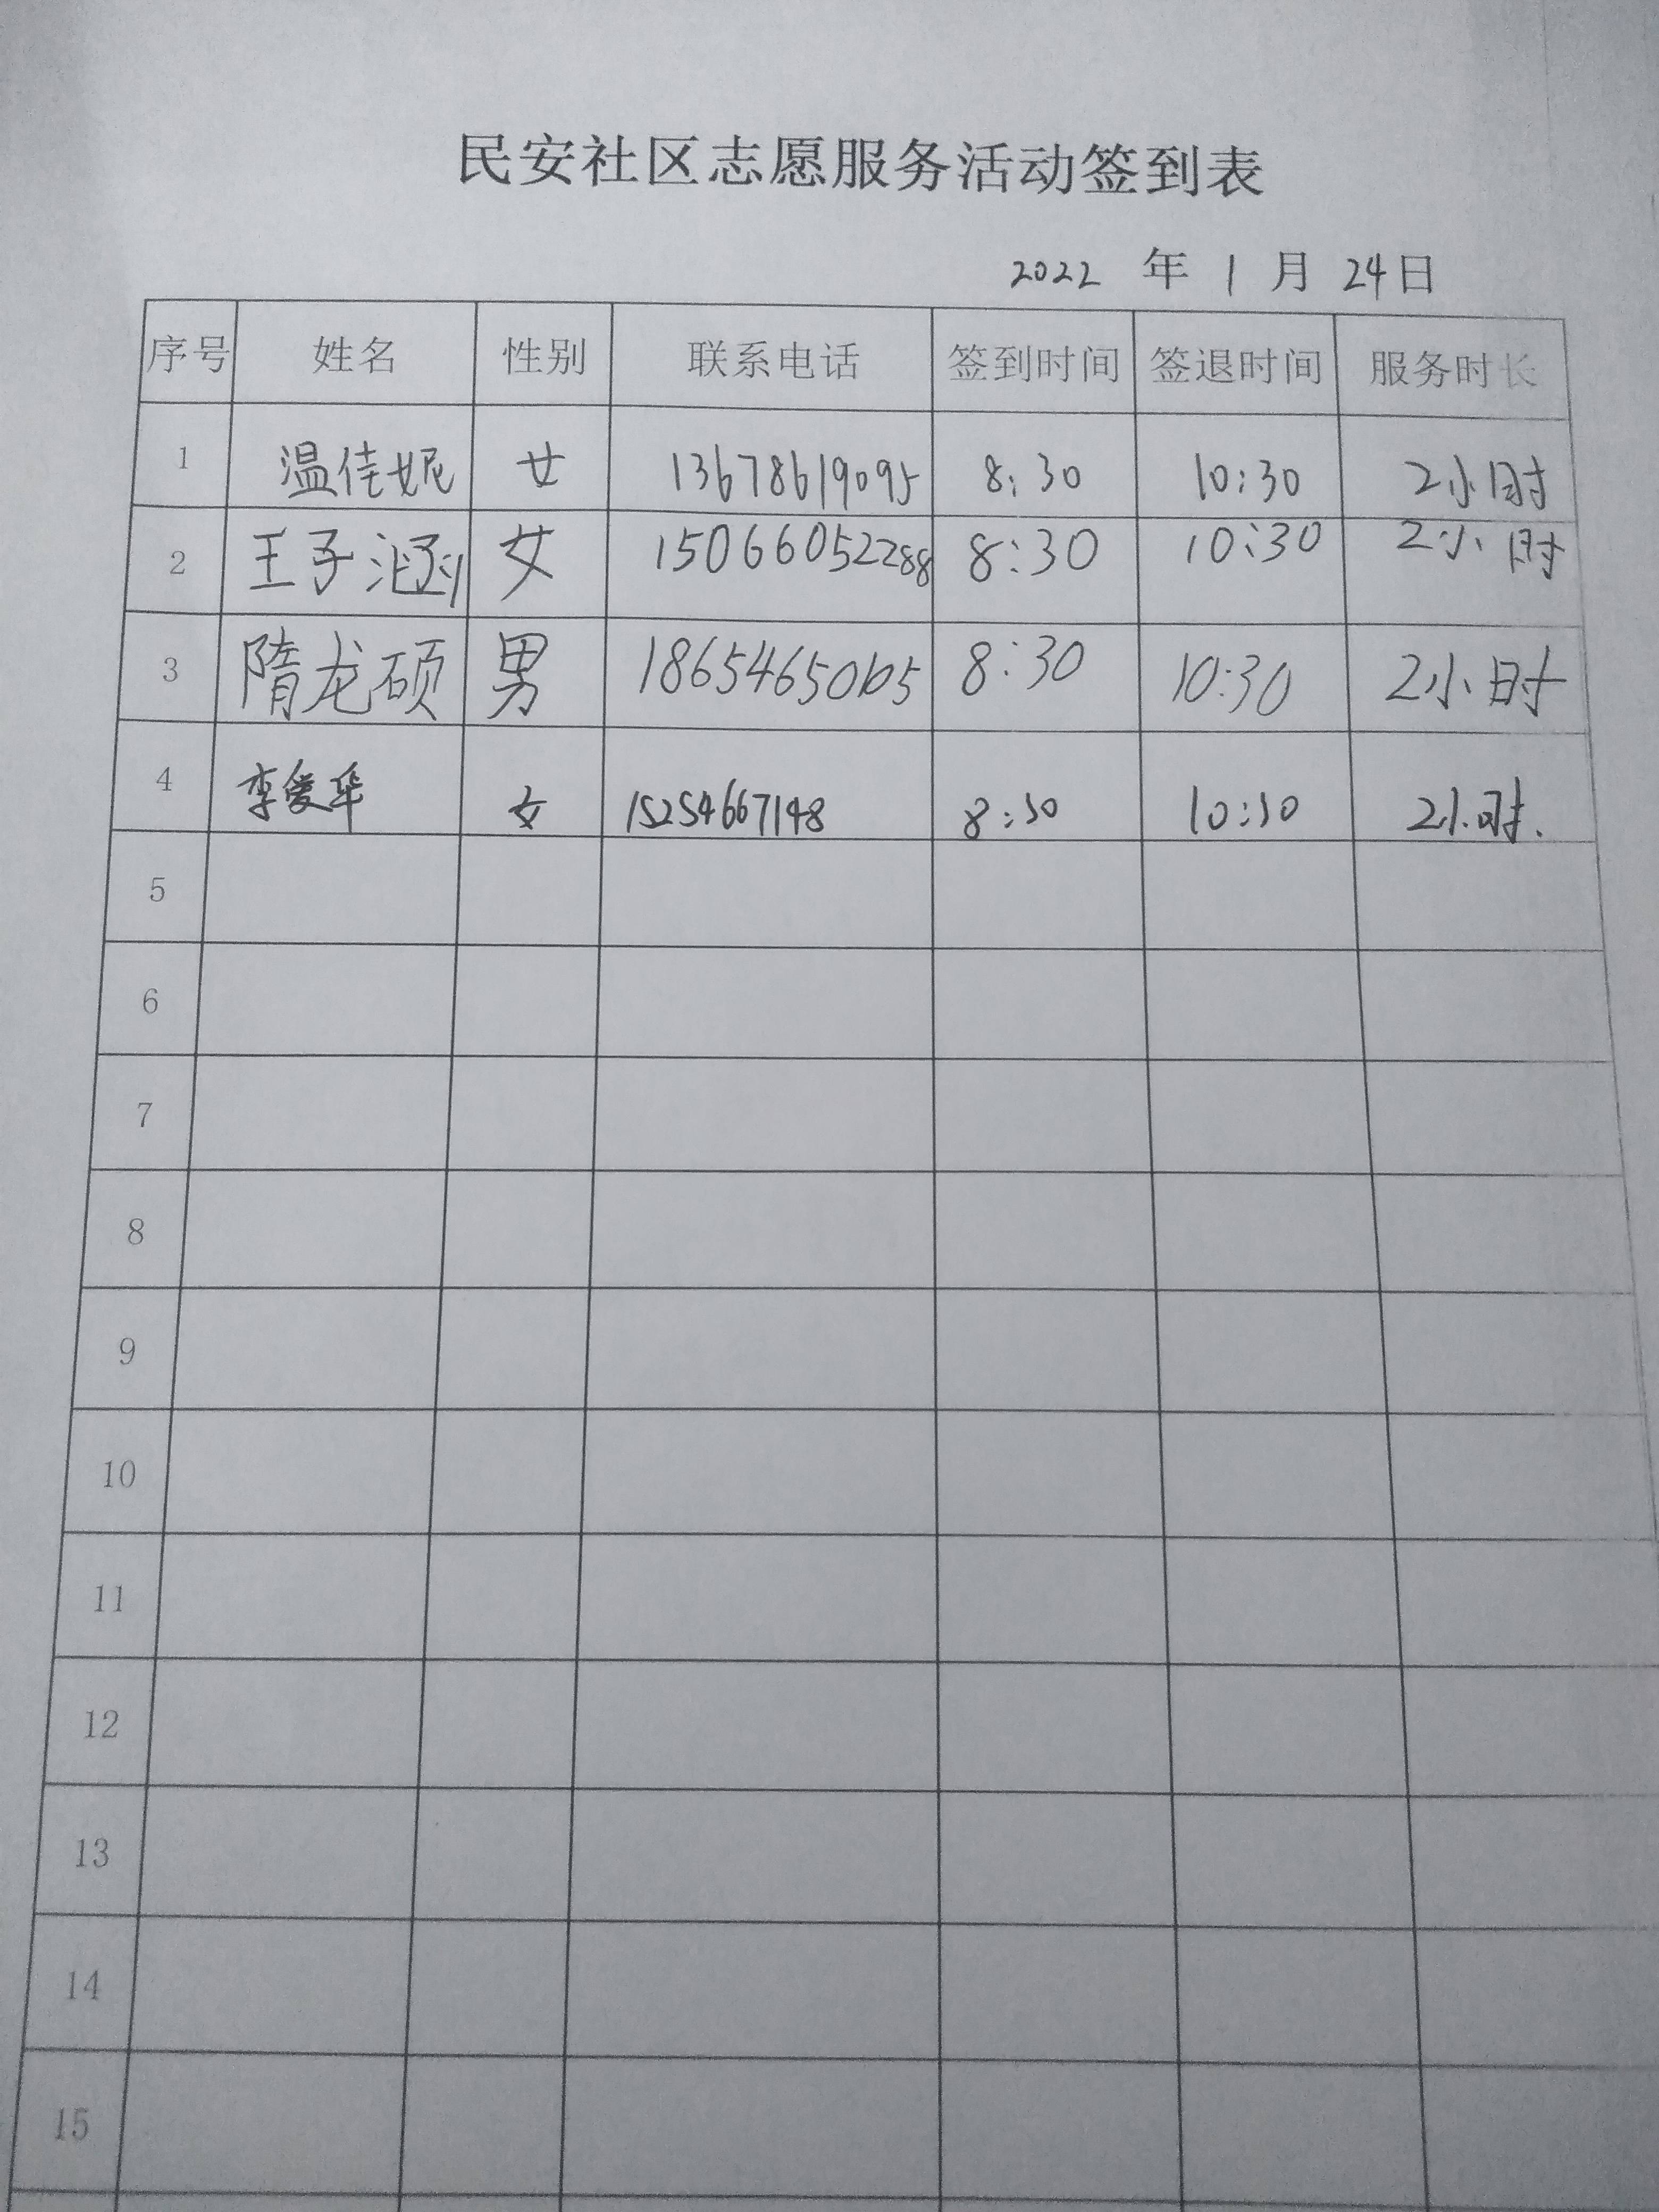 民安社区志愿服务活动签到表
2022 年 1 月 24日
序号 姓名 性别 联系电话 签到时间 签退时间 服务时长
1 温佳妮 女 13678619095 8:30 10:30 2小时
2 王子涵 女 15066052288 8:30 10:30 2小时
3 隋龙硕 男 18654650105 8:30 10:30 2小时
4 李爱华 女 15254667148 8:30 10:30 2小时.
5
6
7
8
9
10
11
12
13
14
15